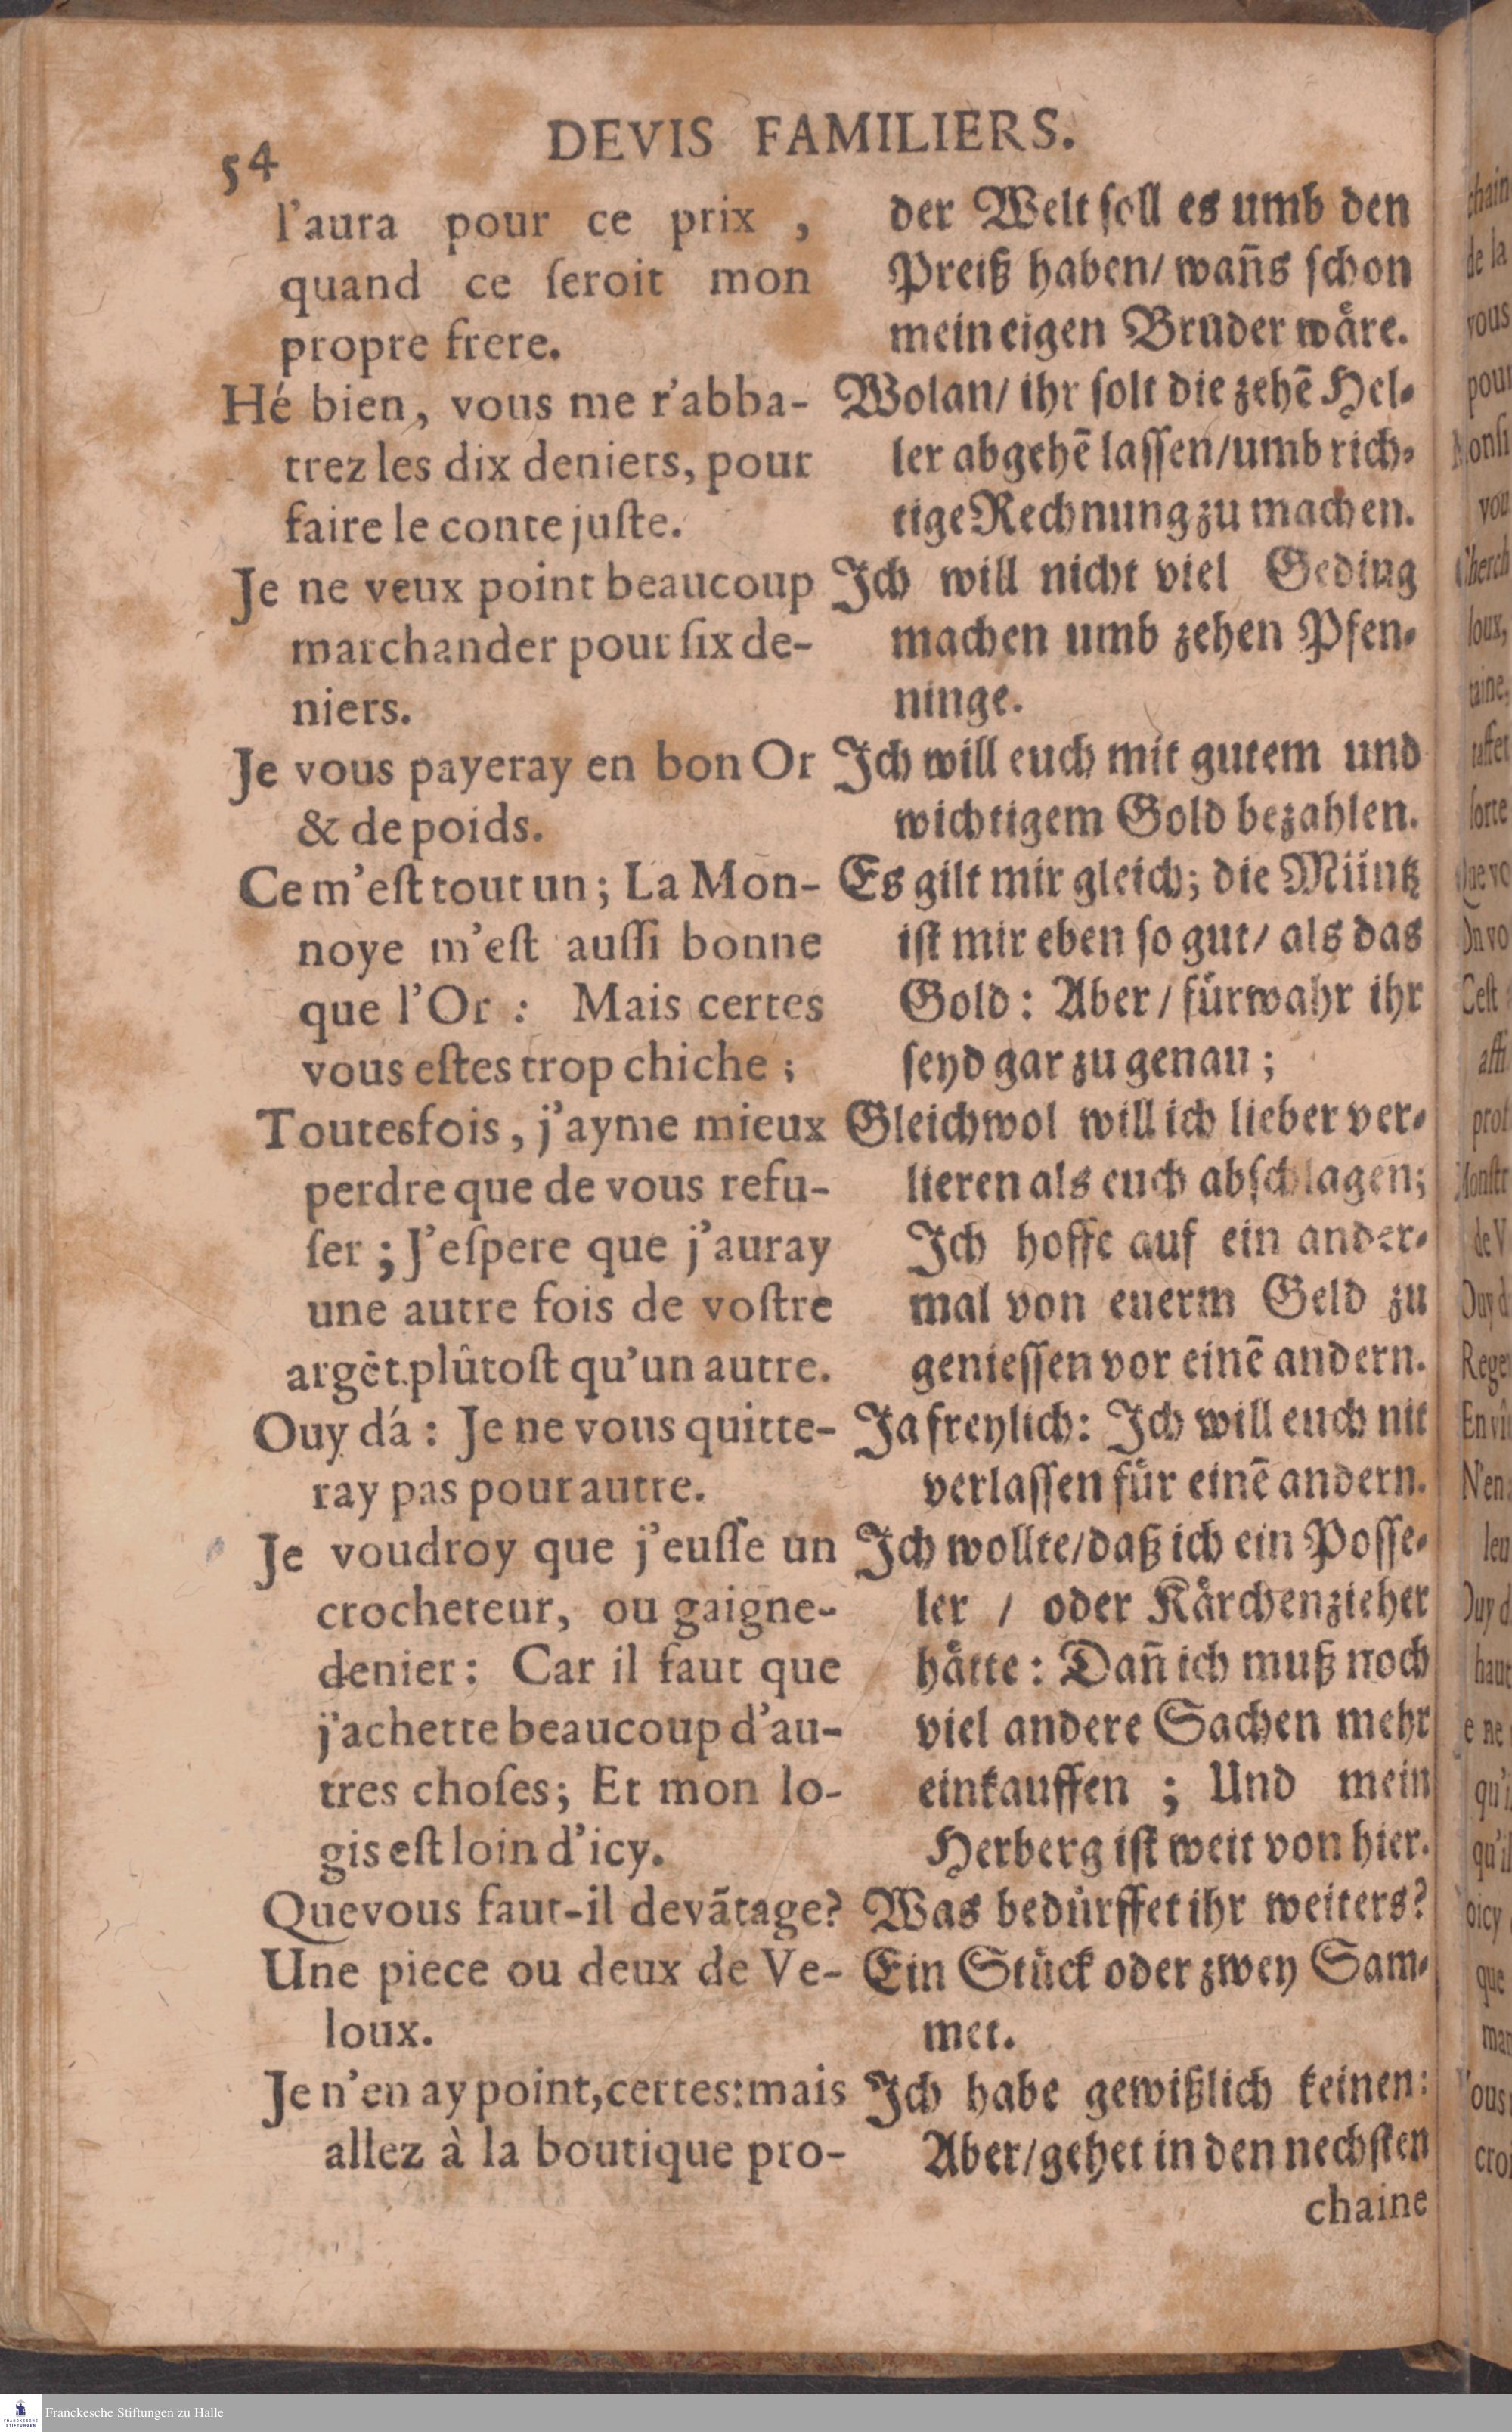 54
DEVIS FAMILIERS.
l'aura pour ce prix ,
quand ce ſeroit mon
propre frere.
Hé bien, vous me r'abba-
trez les dix deniers, pour
faire le conte juſte.
Je ne veux point beaucoup
marchander pour ſix de-
niers.
Je vous payeray en bon Or
& de poids.
Ce m'eſt tout un; La Mon-
noye m'eſt auſſi bonne
que l'Or : Mais certes
vous eſtes trop chiche ;
Toutesfois, j'ayme mieux
perdre que de vous refu-
ſer ; J'eſpere que j'auray
une autre fois de voſtre
argẽt plûtoſt qu'un autre.
Ouy dá : Je ne vous quitte-
ray pas pour autre.
Je voudroy que j'euſſe un
crocheteur, ou gaigne-
denier: Car il faut que
j'achette beaucoup d'au-
tres choſes; Et mon lo-
gis eſt loin d'icy.
Que vous faut-il devãtage?
Une piece ou deux de Ve-
loux.
Je n'en ay point, certes: mais
allez à la boutique pro-
der Welt ſoll es umb den
Preiß haben/ wañs ſchon
mein eigen Bruder wåre.
Wolan/ ihr ſolt die zehẽ Hel-
ler abgehẽ laſſen/umb rich-
tige Rechnung zu machen.
Ich will nicht viel Geding
machen umb zehen Pfen-
ninge.
Ich will euch mit gutem und
wichtigem Gold bezahlen.
Es gilt mir gleich; die Müntz
iſt mir eben ſo gut/ als das
Gold: Aber / fürwahr ihr
ſeyd gar zu genau ;
Gleichwol will ich lieber ver-
lieren als euch abſchlagen;
Ich hoffe auf ein ander-
mal von euerm Geld zu
genieſſen vor einẽ andern.
Ja freylich: Ich will euch nit
verlaſſen für einẽ andern.
Ich wollte/daß ich ein Poſſe-
ler / oder Kårchenzieher
håtte: Dañ ich muß noch
viel andere Sachen mehr
einkauffen ; Und mein
Herberg iſt weit von hier.
Was bedürffet ihr weiters?
Ein Stück oder zwey Sam-
met.
Ich habe gewißlich keinen:
Aber/gehet in den nechſten
chaine
Franckesche Stiftungen zu Halle